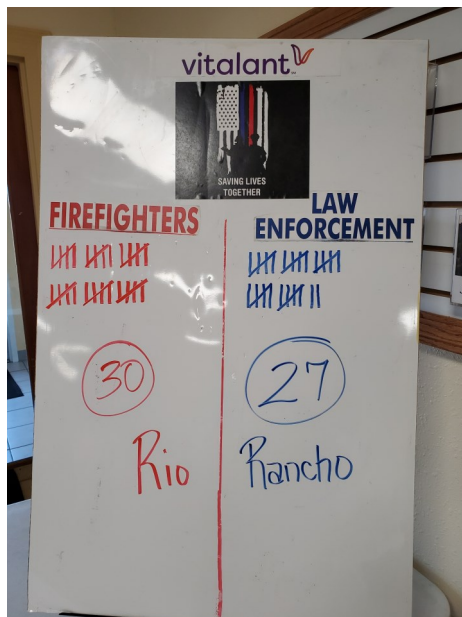 vitalant
SAVING LIVES
TOGETHER
FIREFIGHTERS
LAW
ENFORCEMENT
30
27
Rio Rancho